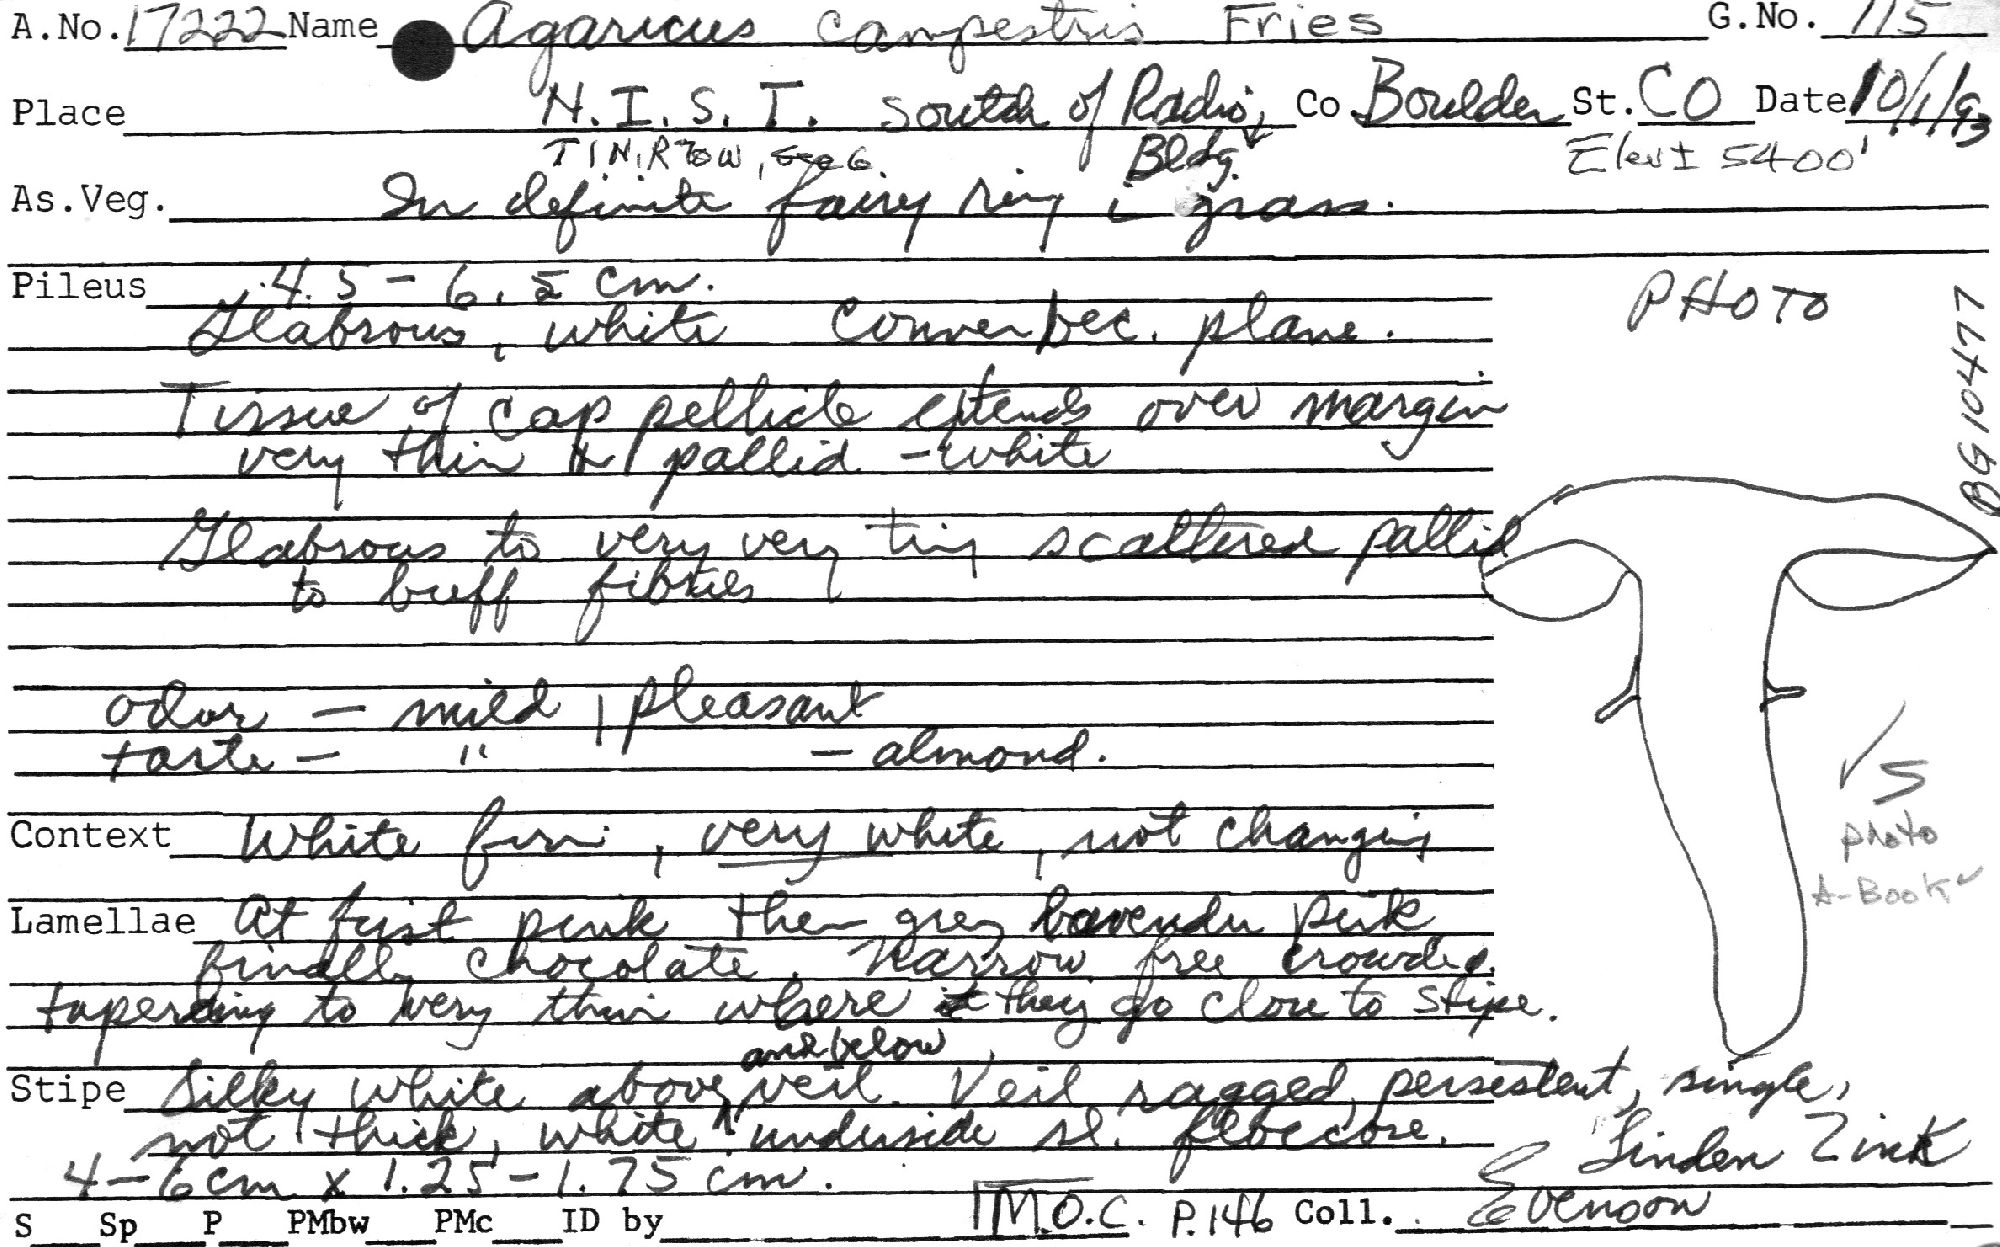 A.No. 17222 Name Agaricus campestris Fries G.No. 115
Place N.I.S.T. south of Radio Co. Boulder St. CO Date 10/1/93
T1N, R70W, Sec 6 Bldg. Elev ± 5400'
As.Veg. In definite fairy ring i grass.
Pileus 4.5 - 6.5 cm.
Glabrous, white Convex/bec. plane.
Tissue of cap pellicle extends over margin
very thin pallid - white
Glabrous to very very tiny scattered pallid
to buff fibriles
odor - mild, pleasant
taste - " - almond.
Context White firm, very white, not changing
Lamellae At first pink then grey lavender pink
finally chocolate. Narrow free crowded.
taperding to very thin where they go close to stipe.
and below
Stipe Silky white above veil. Veil ragged, persistent, single,
not thick, white underside sl. floccose.
4-6 cm x 1.25-1.75 cm.
S Sp P PMbw PMc ID by M.O.C. P.146 Coll. Evenson
Linden Zink
PHOTO
BG 10477
✓ 5
photo
A-Book ✓